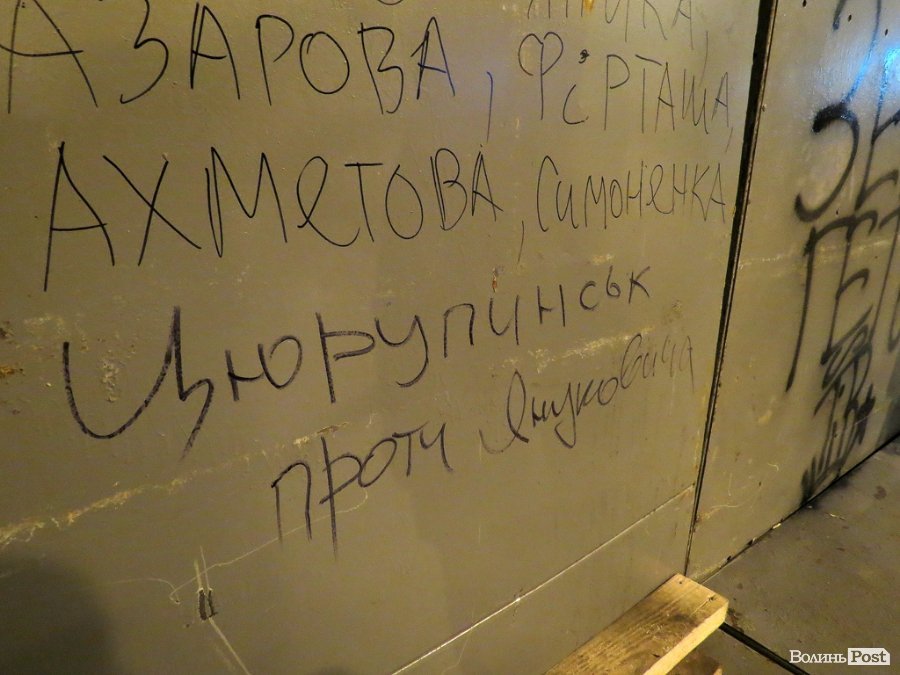 АЗАРОВА, ФіРТАША,
АХМЕТОВА, Симоненка
Цюрупинськ
проти Януковича
ВолиньPost